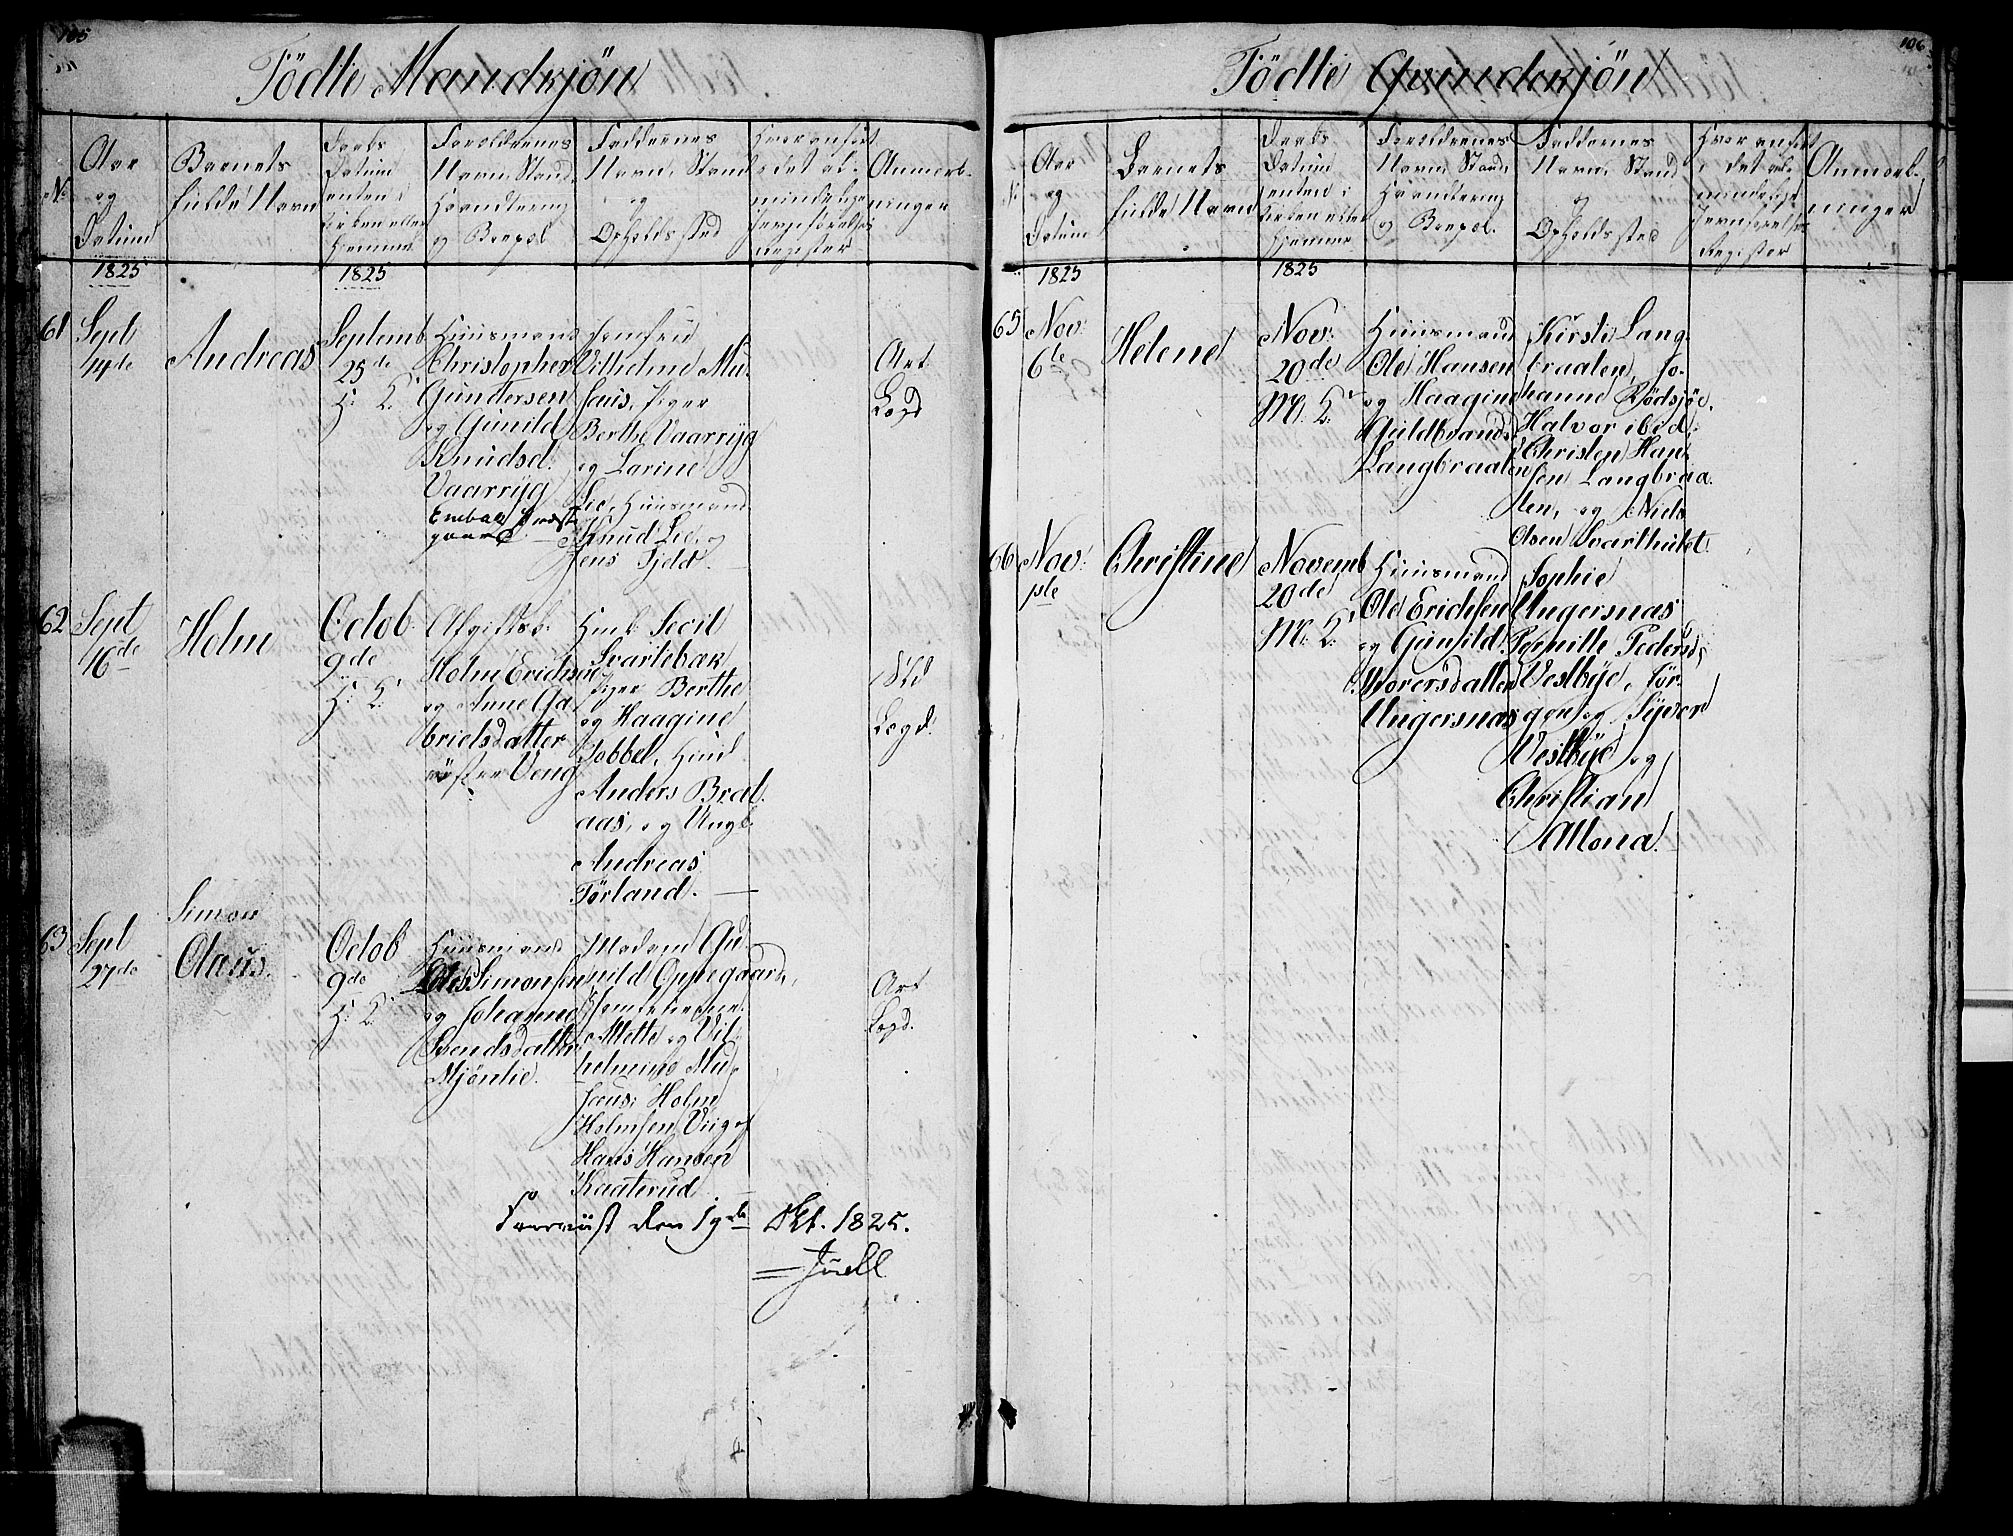 105
Födte Mandkjön
No
Aar
og
Datum
Barnets
fulde Navn
Daabs
Datum
enten i
Kirken eller
Hjemme
Forældrenes
Navn, Stand,
Haandtering
og Boepæl
Faddernes
Navn, Stand
og
Opholdssted
Hvor anført
i det al-
mindelige
Jevnførelses
Register
Anmærk-
ninger
1825
1825
61
Sept
14de
Andreas
Septemb
25de
H: K:
Huusmand
Christopher
Gundersen
og Gunild
Knudsd.
Vaarryg
Jomfru
Vilhelmine Mu-
sæus, Piger
Berthe Vaarryg
og Larine
Lie, Huusmand
Knud Lie, og
Jens Fjeld.
Art
Lægd
62
Sept
16de
Holm
Octob
9de
H: K:
Afgiftsb:
Holm Erichsen
og Anne Ga
brielsdatter
østre Veng
Huuk. Secil
Svartebæk
Piger Berthe
og Haagine
Jobbel, Huusl
Anders Bræk
aas, og Ungk.
Andreas
Törland.
Lægd.
63
Sept
27de
Simon
Olaus.
Octob
9de
H: K:
Huusmand
Ole Simonsen
og Johanne
Svendsdatter
Mjönlie.
Madam Gu-
nild Oppegaard,
Jomfruerne
Mette og Vil-
helmine Mu-
sæus, Holm
Holmsen Viig og
Hans Hansen
Kaaterud
Art
Lægd.
den 19de Okt. 1825.
Juell
106
Födte Qvindekjön
No
Aar
og
Datum
Barnets
fulde Navn
Daabs
Datum
enten i
Kirken eller
Hjemme
Forældrenes
Navn, Stand,
Haandtering
og Boepæl.
Faddernes
Navn, Stand
og
Opholdssted
Hvor anført
i det al-
mindelige
Jevnførelses
Register
Anmærk-
ninger
1825
1825
65
Nov:
6te
Helene
Nov:
20de
M: K:
Huusmand
Ole Hansen
og Haagine
Guldbrands
Langbraaten
Kirsti Lang-
braaten, Jo-
hanne Rödsjöe,
Halvor ibid:
Christen Han-
sen Langbraa-
ten, og Niels
Olsen Svarthulet.
66
Nov:
1ste
Christine
Novemb
20de
M: K:
Huusmand
Ole Erichsen
og Gunild
Hoversdatter
Ungersnæs
Sophie
Ungersnæs
Pernille Pedersd.
Vestbye, Jör-
gen og Syver
Vestbye og
Christian
Mona.